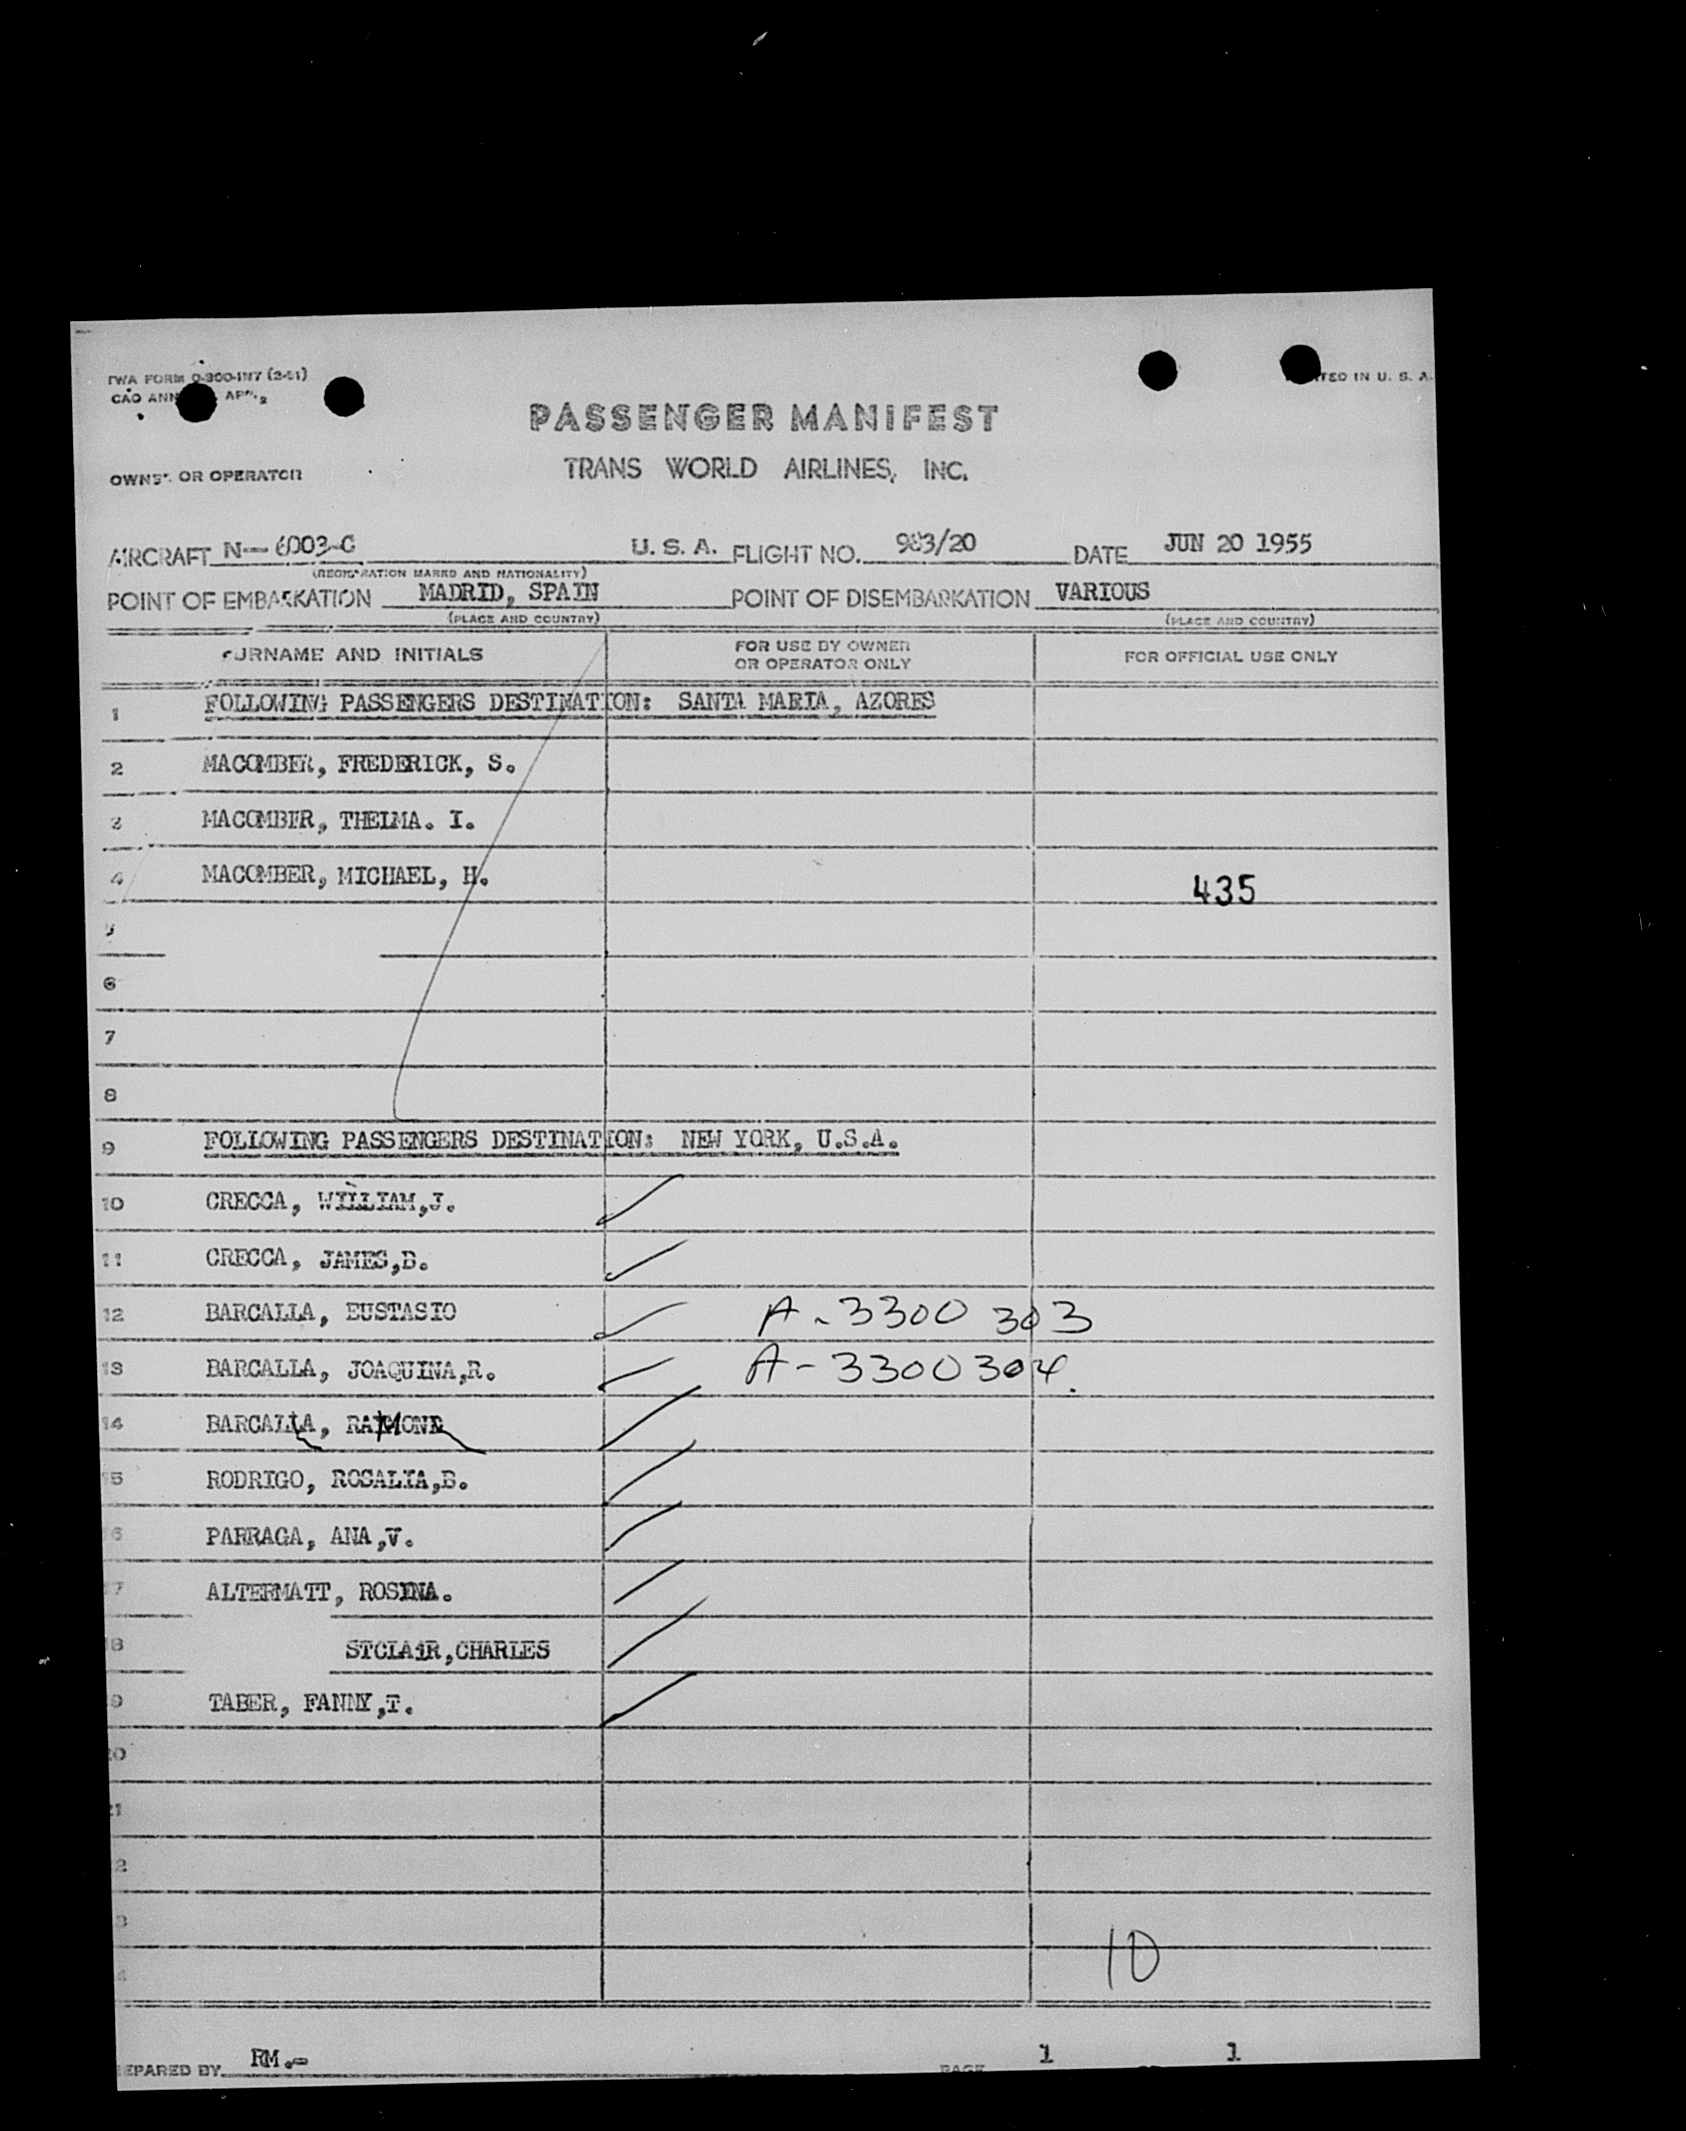 TWA FORM
CAO
PRINTED IN U. S. A.
PASSENGER MANIFEST
OWNER OR OPERATOR TRANS WORLD AIRLINES, INC.
AIRCRAFT N-- 6003-C U. S. A. FLIGHT NO. 983/20 DATE JUN 20 1955
(REGISTRATION MARKS AND NATIONALITY)
POINT OF EMBARKATION MADRID, SPAIN POINT OF DISEMBARKATION VARIOUS
(PLACE AND COUNTRY) (PLACE AND COUNTRY)
SURNAME AND INITIALS FOR USE BY OWNER OR OPERATOR ONLY FOR OFFICIAL USE ONLY
1 FOLLOWING PASSENGERS DESTINATION: SANTA MARIA, AZORES
2 MACOMBER, FREDERICK, S.
3 MACOMBER, THELMA. I.
4 MACOMBER, MICHAEL, H. 435
5
6
7
8
9 FOLLOWING PASSENGERS DESTINATION: NEW YORK, U.S.A.
10 CRECCA, WILLIAM,J.
11 CRECCA, JAMES,B.
12 BARCALLA, EUSTASIO A-3300303
13 BARCALLA, JOAQUINA,R. A-3300304
14 BARCALLA, RAYMOND
15 RODRIGO, ROSALIA,B.
16 PARRAGA, ANA,V.
17 ALTERMATT, ROSINA.
18 STCLAIR,CHARLES
19 TABER, FANNY,T.
20
21
22
23
24
10
PREPARED BY RM.- PAGE 1 1